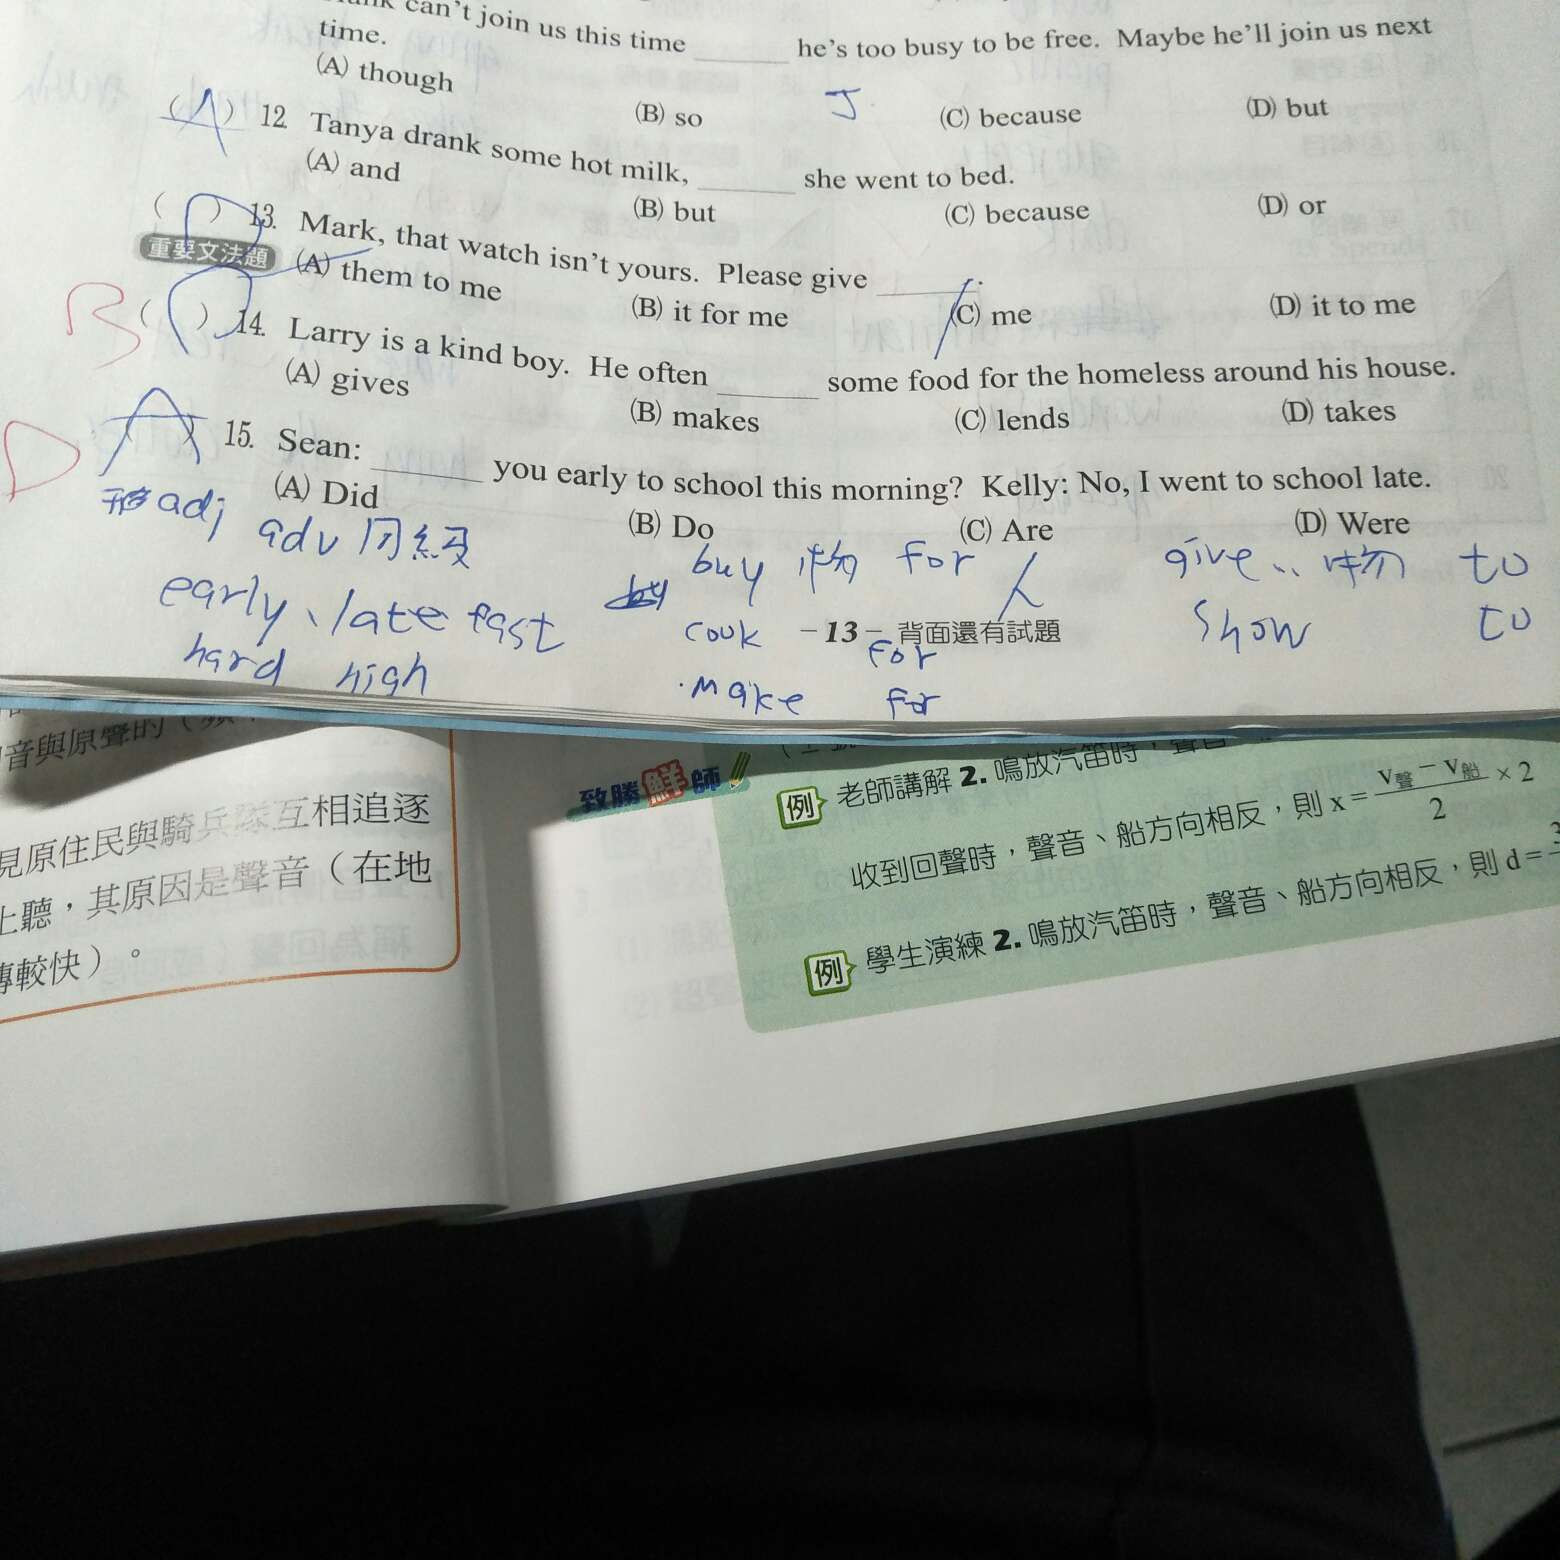 can't join us this time ______ he's too busy to be free. Maybe he'll join us next
time.
(A) though (B) so (C) because (D) but
(A) 12. Tanya drank some hot milk, ______ she went to bed.
(A) and (B) but (C) because (D) or
(D) 13. Mark, that watch isn't yours. Please give ______.
重要文法題 (A) them to me (B) it for me (C) me (D) it to me
B ( ) 14. Larry is a kind boy. He often ______ some food for the homeless around his house.
(A) gives (B) makes (C) lends (D) takes
D (A) 15. Sean: ______ you early to school this morning? Kelly: No, I went to school late.
(A) Did (B) Do (C) Are (D) Were
形 adj adv 同級
early、late fast
hard high
buy 物 for 人
cook for
make for
give‥物 to
show to
-13- 背面還有試題
音與原聲的
見原住民與騎兵隊互相追逐
上聽，其原因是聲音（在地
傳較快）。
致勝鮮師
例 老師講解 2. 鳴放汽笛時，聲音
收到回聲時，聲音、船方向相反，則 x = (v聲 − v船)/2 × 2
例 學生演練 2. 鳴放汽笛時，聲音、船方向相反，則 d =